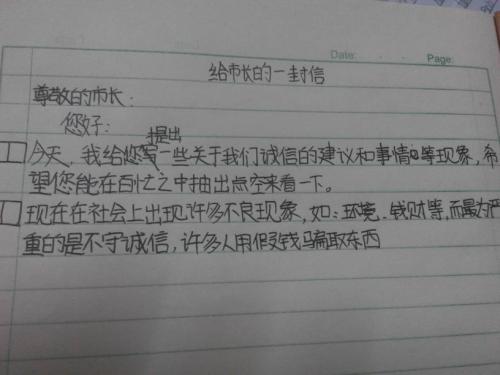 Date:
Page:
给市长的一封信
尊敬的市长：
您好：
提出
今天，我给您写一些关于我们诚信的建议和事情等现象，希
望您能在百忙之中抽出点空来看一下。
现在在社会上出现许多不良现象，如：环境、钱财等，而最为严
重的是不守诚信，许多人用假钱骗取东西